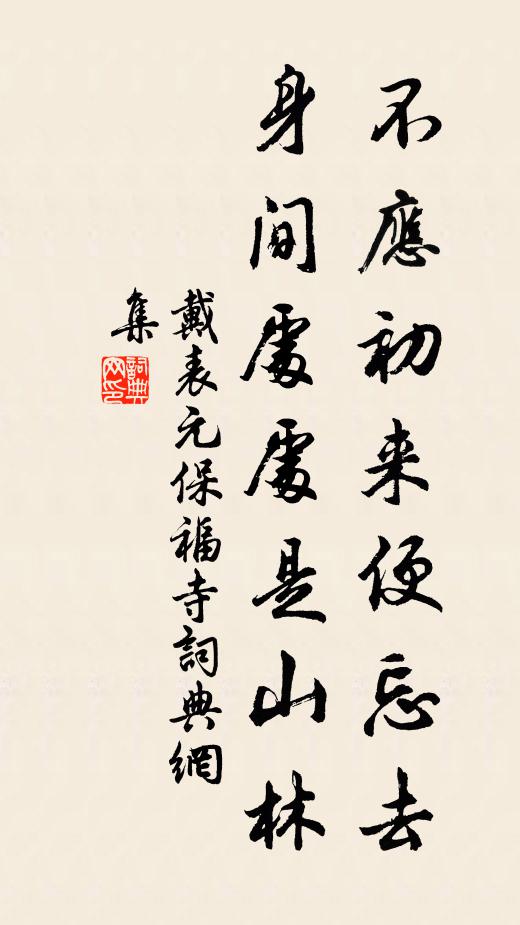 不應初来便忘去
身间處處是山林
戴表元保福寺詞典網
集
詞典網印